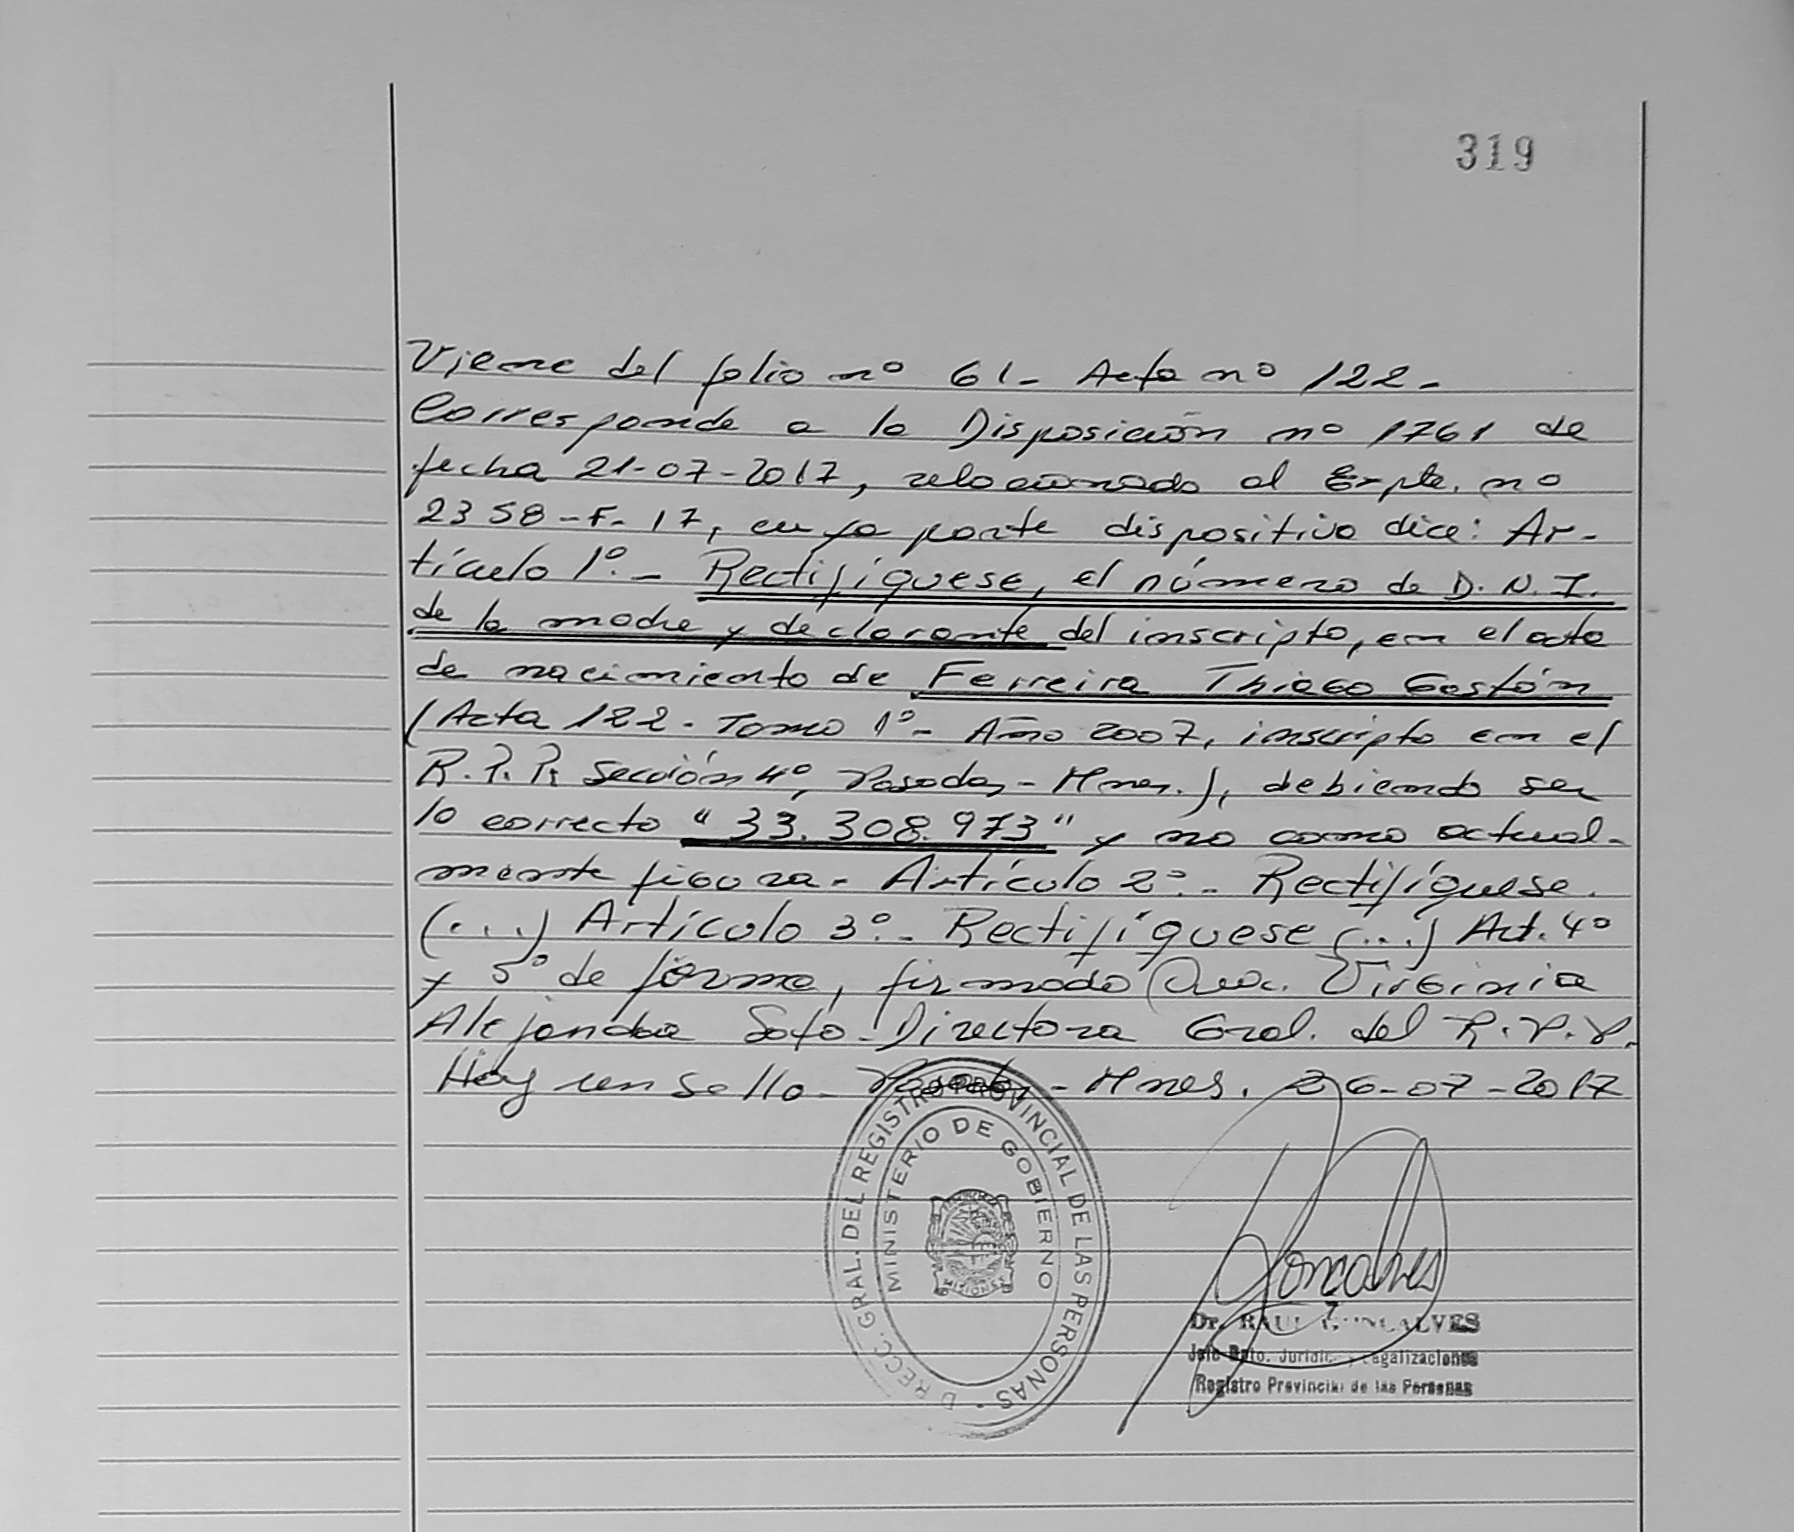 319
Viene del folio nº 61- Acta nº 122-
Corresponde a la Disposición nº 1761 de
fecha 21-07-2017, relacionado al Expte. nº
2358-F-17, cuya parte dispositiva dice: Ar-
tículo 1º.- Rectifíquese, el número de D.N.I.
de la madre y declarante del inscripto, en el acta
de nacimiento de Ferreira Thiago Gastón
(Acta 122- Tomo 1º- Año 2007, inscripto en el
R.P.P. Sección 4º, Posadas- Mnes.), debiendo ser
lo correcto "33.308.973" y no como actual-
mente figura- Artículo 2º- Rectifíquese.
(...) Artículo 3º- Rectifíquese (...) Art. 4º
y 5º de forma, firmado Virginia
Alejandra Soto- Directora Gral. del R.P.P.
Hay un sello- Posadas- Mnes. 26-07-2017
DIRECC. GRAL. DEL REGISTRO PROVINCIAL DE LAS PERSONAS -
MINISTERIO DE GOBIERNO
MISIONES
Goncalves
Dr. RAUL GONCALVES
Jefe Dpto. Juridic. y Legalizaciones
Registro Provincial de las Personas